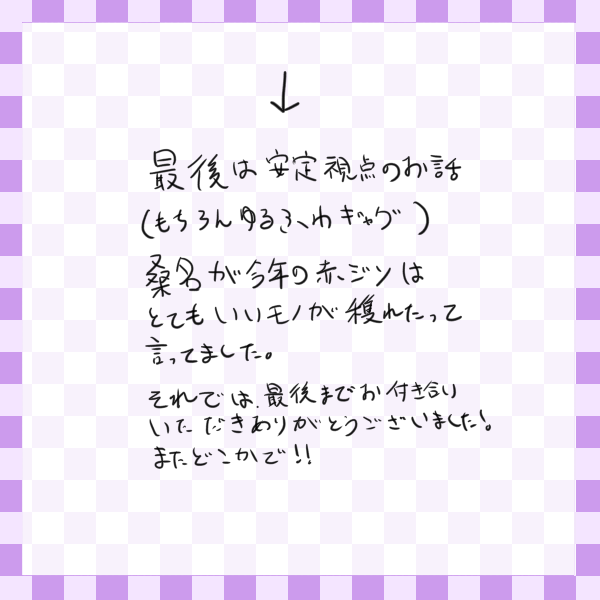 ↓
最後は安定視点のお話
(もちろんゆるふわギャグ)
桑名が今年の赤ジソは
とてもいいモノが穫れたって
言ってました。
それでは、最後までお付き合い
いただきありがとうございました!
またどこかで!!